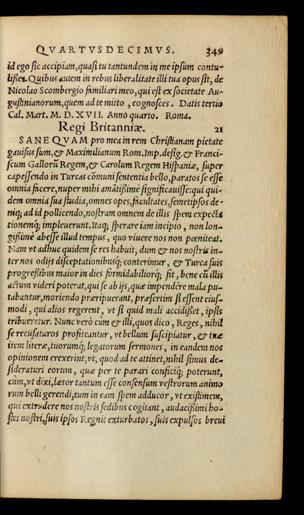 QVARTVSDECIMVS. 349
id ego sic accipiam, quasi tu tantundem in me ipsum contu-
lisses. Quibus autem in rebus liberalitate illi tua opus sit, de
Nicolao Scombergio familiari meo, qui est ex societate Au-
gustinianorum, quem ad te mitto, cognosces. Datis tertio
Cal. Mart. M. D. XVII. Anno quarto. Roma.
Regi Britanniæ. 21
SANE QVAM pro mea in rem Christianam pietate
gauisus sum, & Maximilianum Rom. Imp. desig. & Franci-
scum Gallorũ Regem, & Carolum Regem Hispaniæ, super
capessendo in Turcas cõmuni sententia bello, paratos se esse
omnia facere, nuper mihi amãtissimè significauisse: qui qui-
dem omnia sua studia, omnes opes, facultates, semetipsos de-
niq; ad id pollicendo, nostram omnem de illis spem expectã
tionemq; impleuerunt. Itaq; sperare iam incipio, non lon-
gissimè abesse illud tempus, quo viuere nos non pœniteat.
Nam vt adhuc quidem se res habuit, dum & nos nostris in-
ter nos odijs disceptationibusq; conterimur, & Turca suis
progressibus maior in dies formidabiliorq; fit, bene cũ illis
actum videri poterat, qui se ab ijs, quæ impendére mala pu-
tabantur, moriendo præripuerant, præsertim si essent eius-
modi, qui alios regerent, vt si quid mali accidisset, ipsis
tribueretur. Nunc verò cùm & illi, quos dico, Reges, nihil
se recusaturos profiteantur, vt bellum suscipiatur, & tuæ
item literæ, tuorumq; legatorum sermones, in eandem nos
opinionem erexerint, vt, quod ad te attinet, nihil simus de-
sideraturi eorum, quæ per te parari conficiq; poterunt,
cùm, vt dixi, lætor tantum esse consensum vestrorum animo
rum belli gerendi, tum in eam spem adducor, vt existimem,
qui extrudere nos nostris sedibus cogitant, audacissimi ho-
stes nostri, suis ipsos Regnis exturbatos, suis expulsos breui